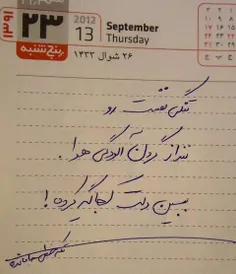 ۱۳۹۱
۲۳
پنج شنبه
2012
13
September
Thursday
۲۶ شوال ۱۴۳۳
تنگی نفست رو
ننداز گردن آلودگی هوا.
ببین دلت کجا گیر کرده!